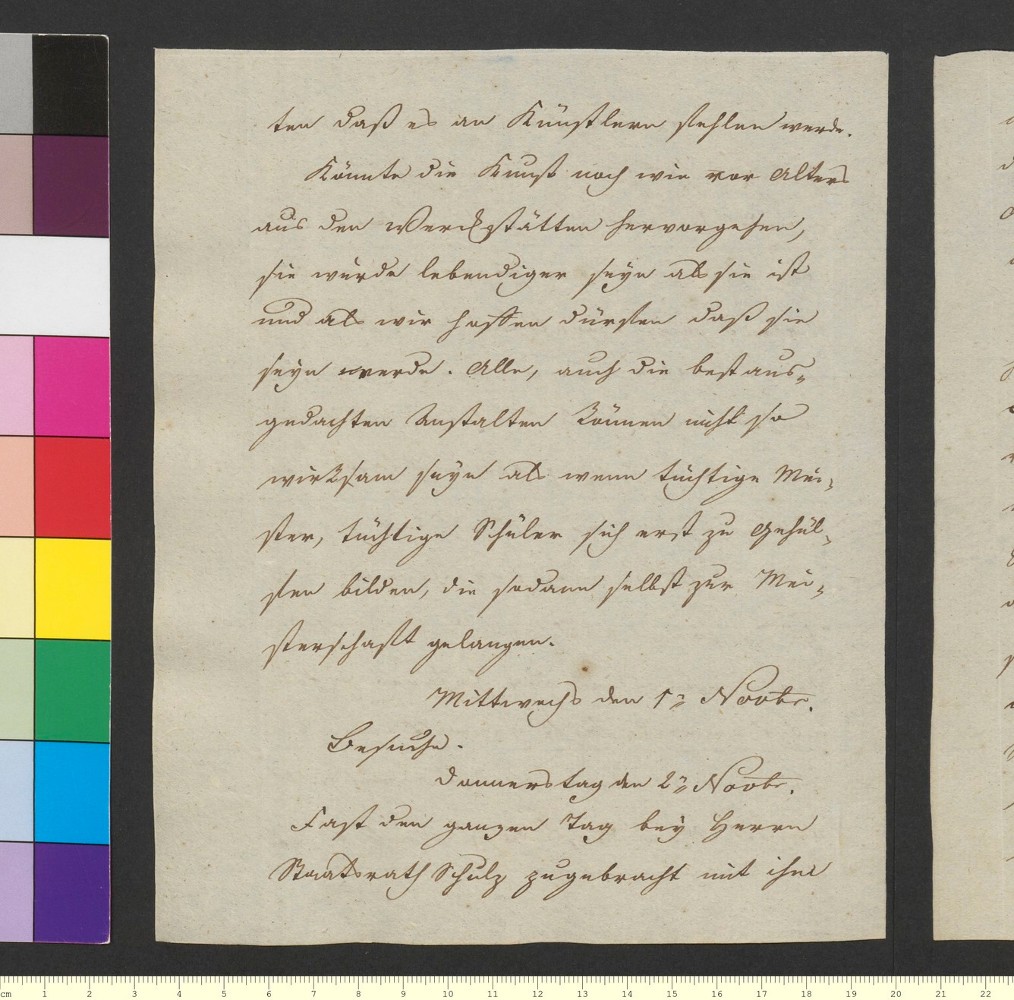 ten daß es an Künstlern fehlen werde.
Könnte die Kunst noch wie vor Alters
aus den Werckstätten hervorgehen,
sie würde lebendiger seyn als sie ist
und als wir hoffen dürfen daß sie
seyn werde. Alle, auch die best aus-
gedachten Anstalten können nicht so
wirksam seyn als wenn tüchtige Mei-
ster, tüchtige Schüler sich erst zu Gehül-
fen bilden, die sodann selbst zur Mei-
sterschaft gelangen.
Mittwochs den 1n Novbr.
Besuche.
Donnerstag den 2n Novbr.
Fast den ganzen Tag bey Herrn
Staatsrath Schulz zugebracht mit ihm
cm 1 2 3 4 5 6 7 8 9 10 11 12 13 14 15 16 17 18 19 20 21 22